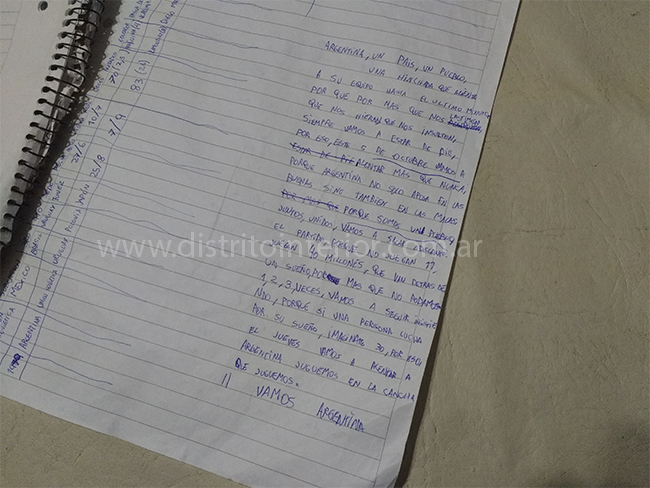 ARGENTINA, UN PAIS, UN PUEBLO,
UNA HINCHADA QUE ALIENTA
A SU EQUIPO HASTA EL ULTIMO MINUTO
POR QUE POR MAS QUE NOS LASTIMEN
QUE NOS HIERAN, QUE NOS INSULTEN,
SIEMPRE VAMOS A ESTAR DE PIE,
POR ESO, ESTE 5 DE OCTUBRE VAMOS A
ALENTAR MAS QUE NUNCA,
PORQUE ARGENTINA NO SOLO APOYA EN LAS
BUENAS SINO TAMBIEN EN LAS MALAS
PORQUE SOMOS UN PUEBLO
JUNTOS, UNIDOS, VAMOS A
EL PARTIDO, PORQUE NO JUEGAN 11,
JUEGAN 40 MILLONES, QUE VAN DETRAS DE
UN SUEÑO, POR MAS QUE NO PODAMOS
1, 2, 3, VECES, VAMOS A SEGUIR
NDO, PORQUE SI UNA PERSONA LUCHA
POR SU SUEÑO, IMAGINATE 30, POR ESO,
EL JUEVES VAMOS A ALENTAR A
ARGENTINA JUGUEMOS EN LA CANCHA
QUE JUGUEMOS.
VAMOS ARGENTINA
MEXICO
ARGENTINA
JAPON 25/8
27/6
10/7
7/9
70 (7,5)
83 (21)
www.distritointerior.com.ar